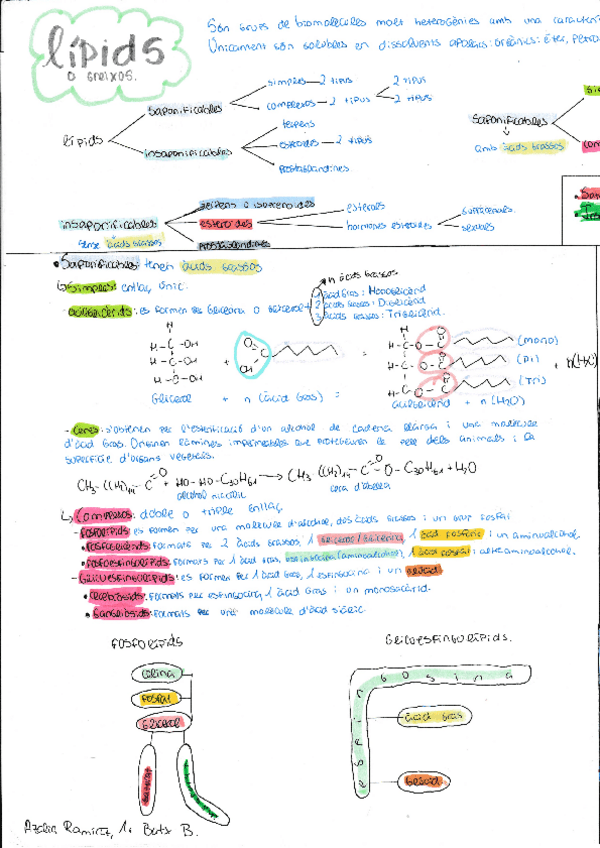 lípids
o greixos.
Són grups de biomolècules molt heterogènies amb una caracterís
Únicament són solubles en dissolvents apolars: orgànics: èter, petro
lípids
saponificables
simples - 2 tipus
2 tipus
complexos - 2 tipus
2 tipus
insaponificables
terpens
esteroides - 2 tipus
prostaglandines.
Saponificables
amb àcids grassos
insaponificables
sense àcids grassos
terpens o isoprenoides
esteroides
esterols
hormones esteroides
suprarenals.
sexuals
prostaglandines
• Saponificables: tenen àcids grassos
simples: enllaç únic.
n àcids grassos
- acilglicèrids: es formen per glicerina o glicerol +
1 àcid gras: Monoglicèrid
2 àcids grassos: Diglicèrid
3 àcids grassos: Triglicèrid.
(mono)
(Di)
(Tri)
Glicerol + n (àcid gras) = acilglicèrid + n (H2O)
- Ceres: s'obtenen per l'esterificació d'un alcohol de cadena llarga i una molècula
d'àcid gras. Originen làmines impermeables que protegeixen la pell dels animals i la
superfície d'òrgans vegetals.
cera d'abella
Complexos: doble o triple enllaç
- Fosfolípids es formen per una molècula d'alcohol, dos àcids grassos i un grup fosfat
• Fosfoglicèrids: Formats per 2 àcids grassos, 1 glicerol/glicerina, 1 àcid fosfòric i un aminoalcohol.
• Fosfoesfingolípids: Formats per 1 àcid gras, esfingosina (aminoalcohol), 1 àcid fosfat i altre aminoalcohol.
- Glicoesfingolípids: es formen per 1 àcid gras, 1 esfingosina i un glúcid
• Cerebròsids: Formats per esfingosina, 1 àcid gras i un monosacàrid.
• Gangliòsids: Formats per una molècula d'àcid siàlic.
FOSFOLÍPIDS
colina
Fosfat
Glicerol
GLICOESFINGOLÍPIDS.
esfingosina
àcid gras
Glúcid
Ramírez, 1r Batx B.